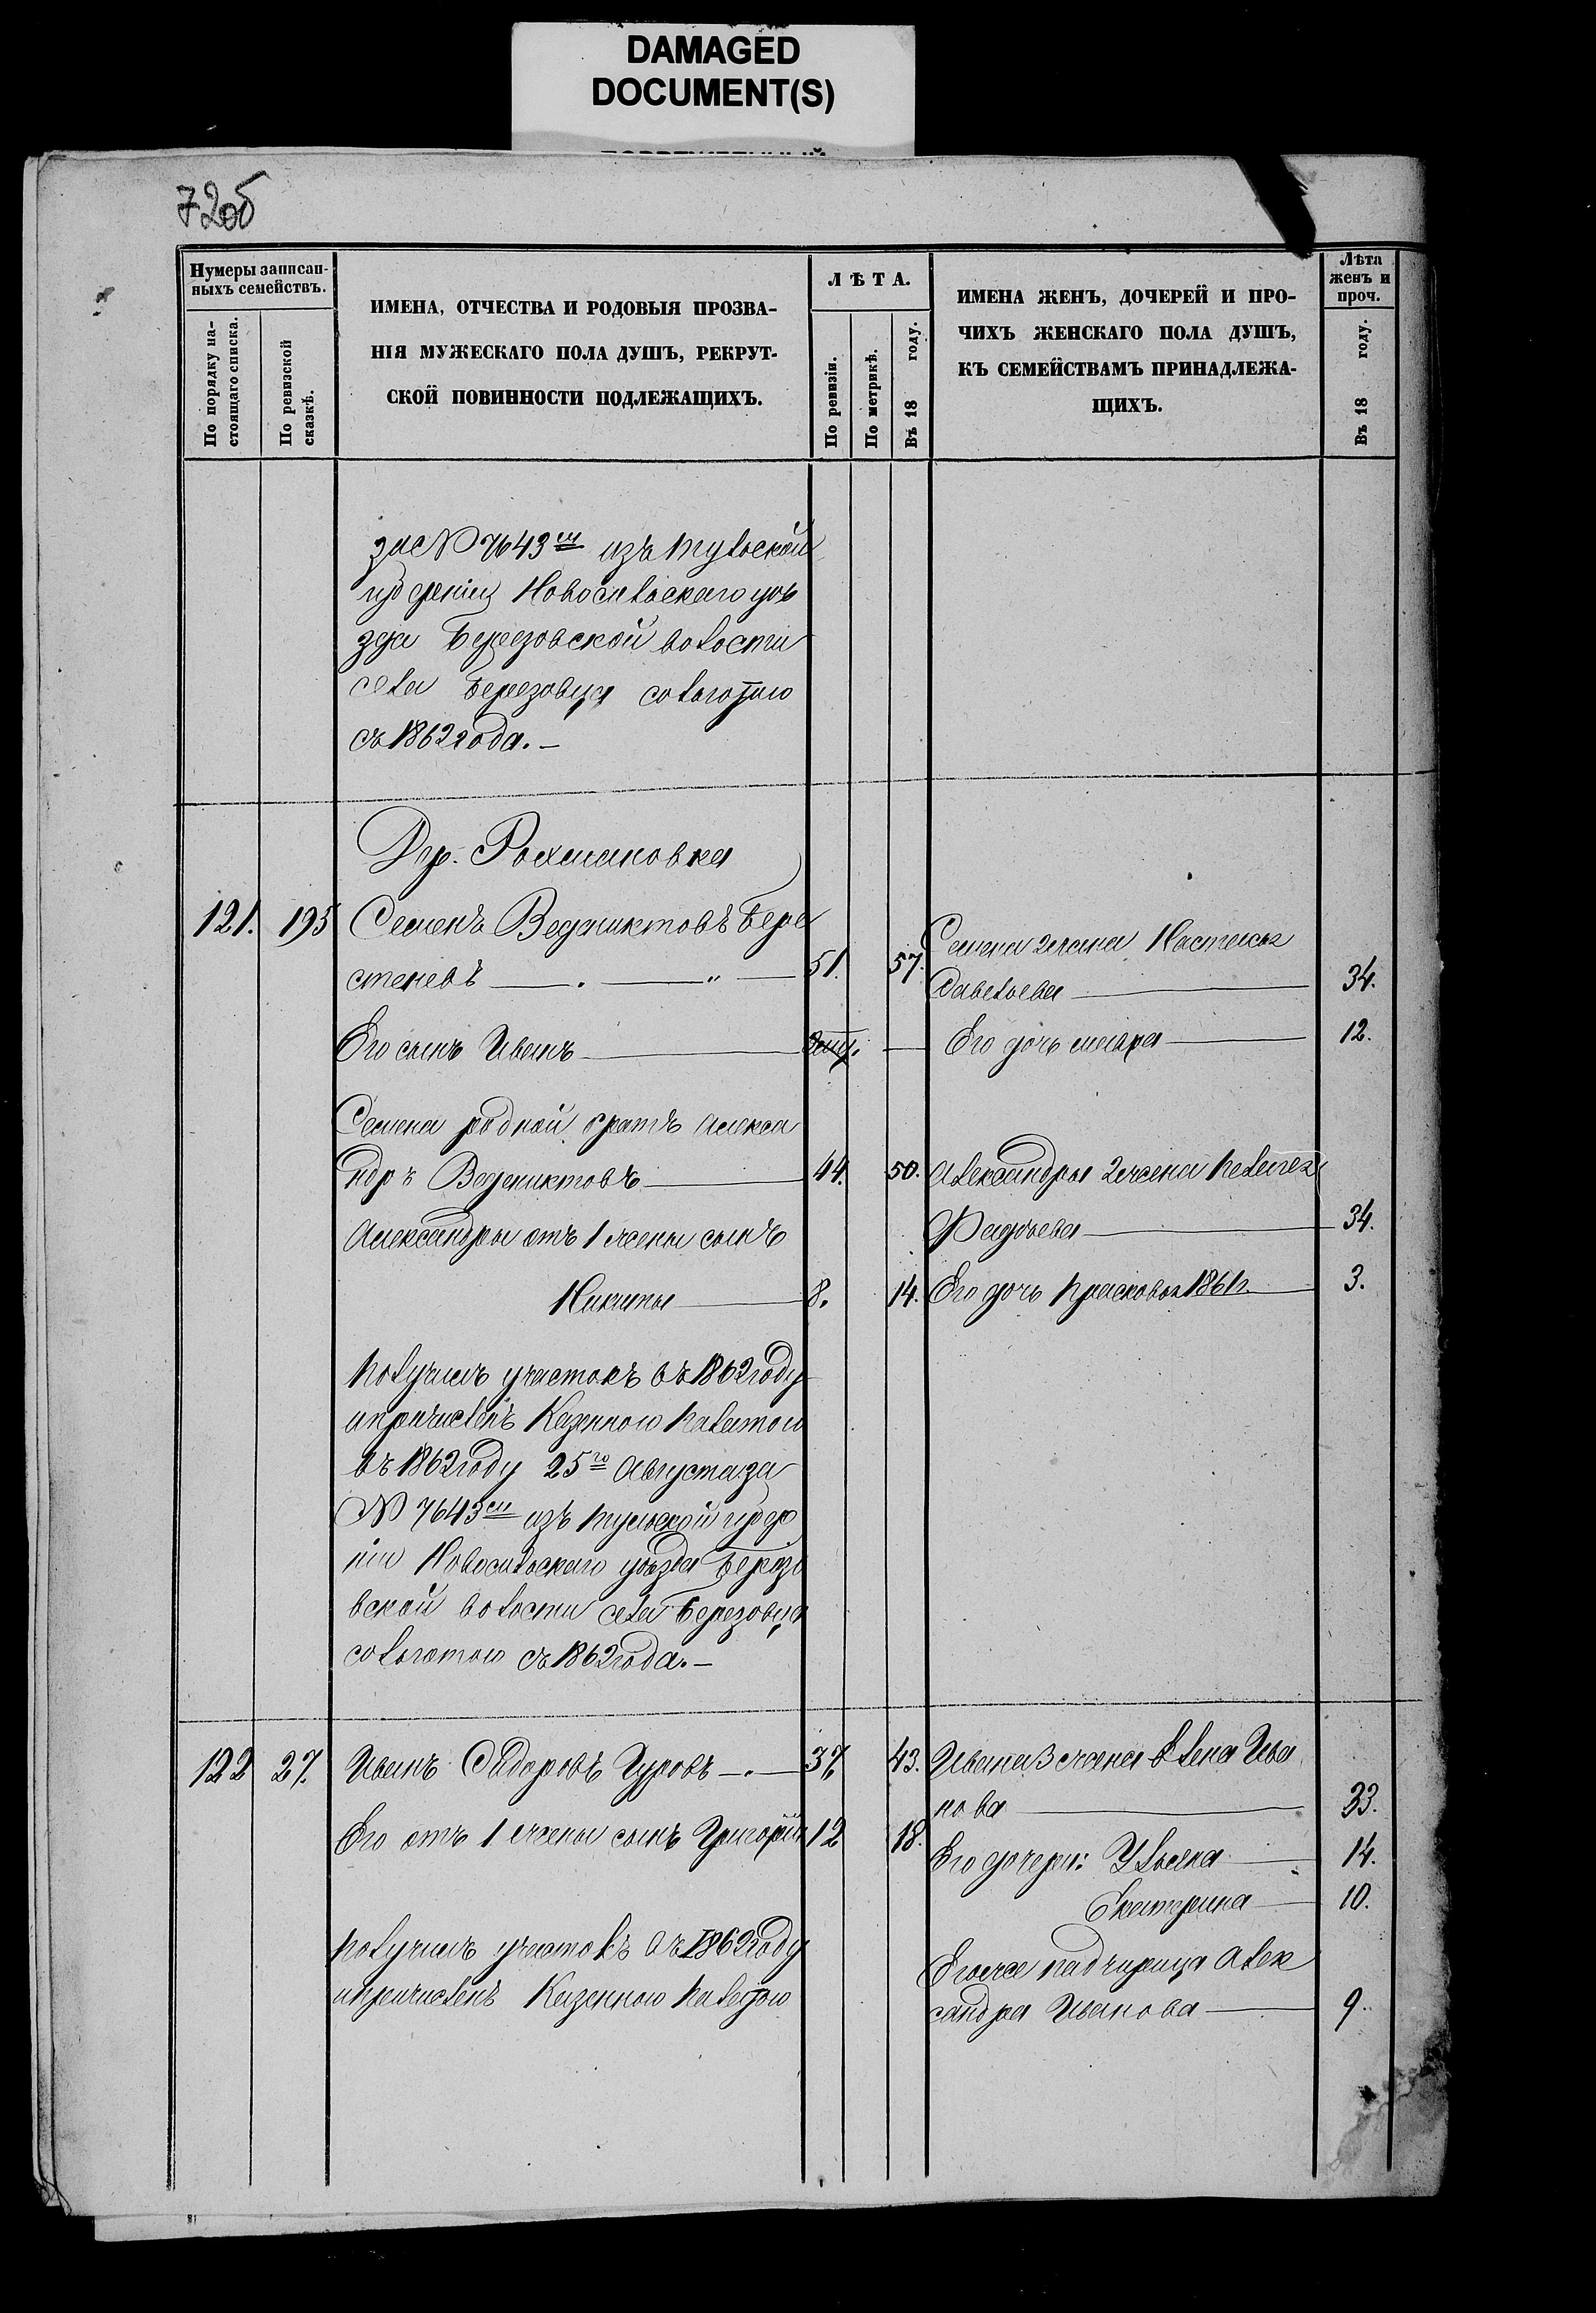 DAMAGED
DOCUMENT(S)
72об
Нумеры записан-
ныхъ семействъ.
По порядку на-
стоящаго списка.
По ревизской
сказкѣ.
ИМЕНА, ОТЧЕСТВА И РОДОВЫЯ ПРОЗВА-
НІЯ МУЖЕСКАГО ПОЛА ДУШЪ, РЕКРУТ-
СКОЙ ПОВИННОСТИ ПОДЛЕЖАЩИХЪ.
ЛѢТА.
По ревизіи.
По метрикѣ.
Въ 18 году.
ИМЕНА ЖЕНЪ, ДОЧЕРЕЙ И ПРО-
ЧИХЪ ЖЕНСКАГО ПОЛА ДУШЪ,
КЪ СЕМЕЙСТВАМЪ ПРИНАДЛЕЖА-
ЩИХЪ.
Лѣта
женъ и
проч.
Въ 18 году.
за № 7643мъ изъ Тульской
губерніи Новосильскаго уѣ
зда Березовской волости
села Березовца сольготою
съ 1862 года. —
Дер. Рахмановка
121. 195 Семенъ Ведениктовъ Бере
стеневъ 51. 57.
Семена 2 жена Настасья
Савельева 34.
Его сынъ Иванъ —
Его дочь 12.
Семена родной братъ Алекса
ндръ Ведениктовъ 44. 50.
Александры 2 жена Пелагея
Фадѣева 34.
Александры отъ 1 жены сынъ
Никита 8. 14.
Его дочь Прасковья 1861г. 3.
Получилъ участокъ въ 1862 году
ипричисленъ Казенною Палатою
въ 1862 году 25го Августа за
№ 7643мъ изъ Тульской губер
ніи Новосильскаго уѣзда Березо
вской волости села Березовца
сольготою съ 1862 года. —
122 27. Иванъ Сидоровъ Гуровъ 37. 43.
Ивана 3 жена Алена Ива
нова 33.
Его отъ 1 жены сынъ Григорій 12 18.
Его дочери: Ульяна 14.
Екатерина 10.
Получилъ участокъ въ 1862 году
ипричисленъ Казенною Палатою
Егоже падчерица Алек
сандра Иванова 9.